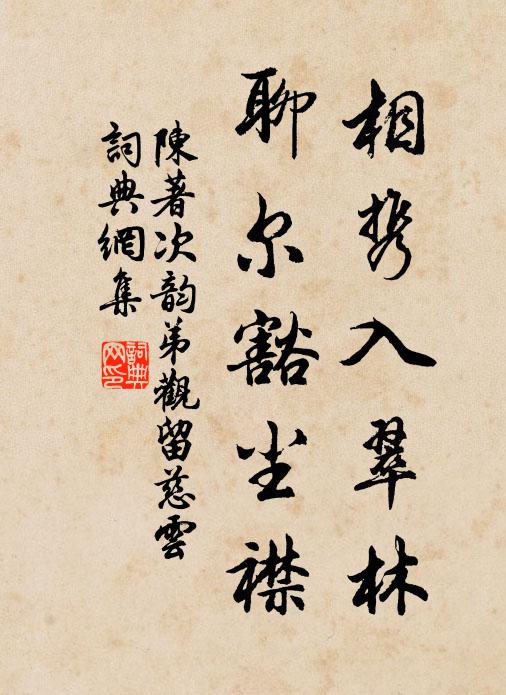 相携入翠林
聊尔豁尘襟
陳著次韵弟觀留慈雲
詞典網集
詞典網印